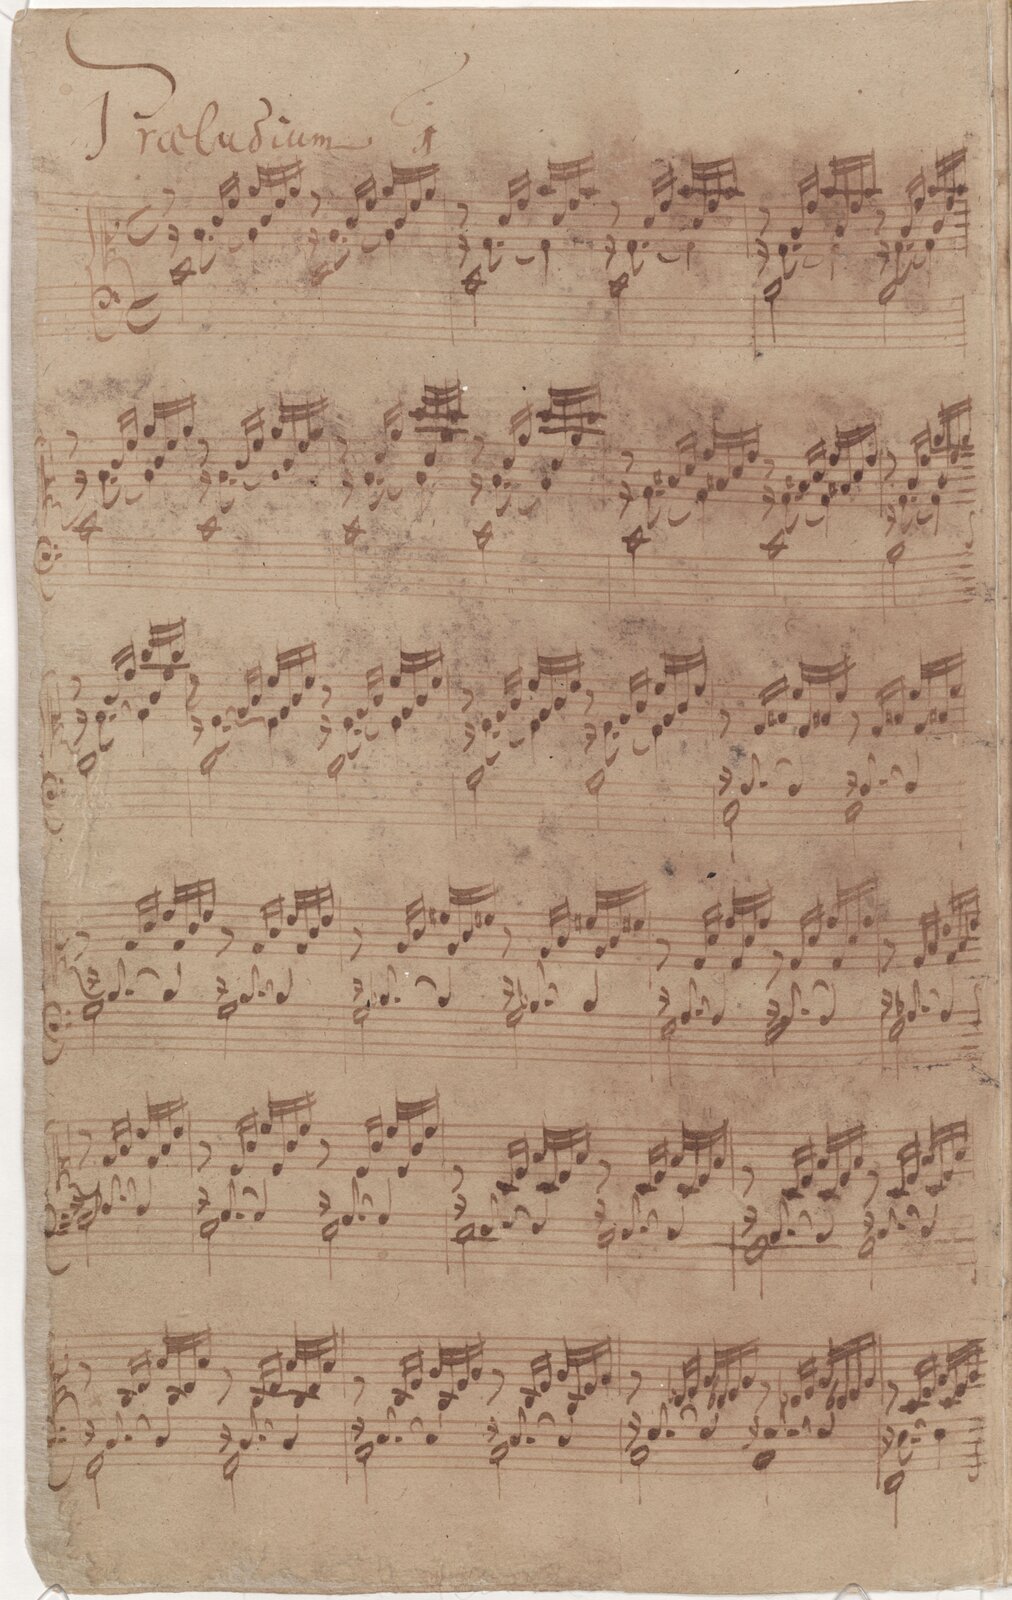 Præludium 1